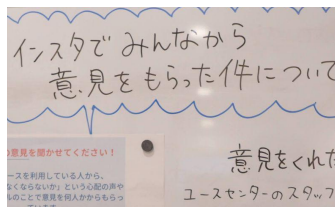 インスタでみんなから
意見をもらった件について
意見を聞かせてください！
ースを利用している人から、
なくならないか」という心配の声や
のことで意見を何人かからもらっ
意見をくれた
ユースセンターのスタッフ